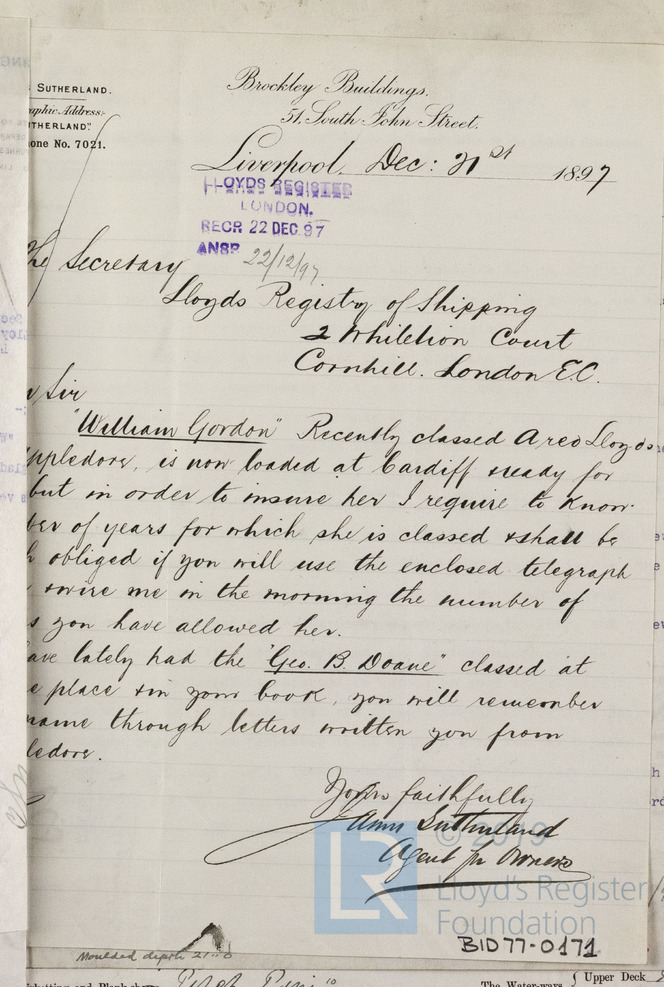 SUTHERLAND.
raphic Address:-
THERLAND".
one No. 7021.
Brockley Buildings.
51. South John Street.
Liverpool, Dec: 21st 1897
LLOYDS REGISTER
LONDON.
RECR 22 DEC 97
ANSR 22/12/97
The Secretary
Lloyds Registry of Shipping
2 Whitelion Court
Cornhill. London E.C.
Sir
"William Gordon" Recently classed A red Lloyds
ppledore, is now loaded at Cardiff ready for
but in order to insure her I require to know
ber of years for which she is classed & shall be
h obliged if you will use the enclosed telegraph
& wire me in the morning the number of
s you have allowed her.
ave lately had the "Geo. B. Doane" classed at
e place & in your book, you will remember
name through letters written you from
ledore.
Yours faithfully
Sutherland
Agent for Owners
© 2019
LR
Lloyd's Register
Foundation
BID77-0171
Moulded depth 21..0
The Water-ways
Upper Deck